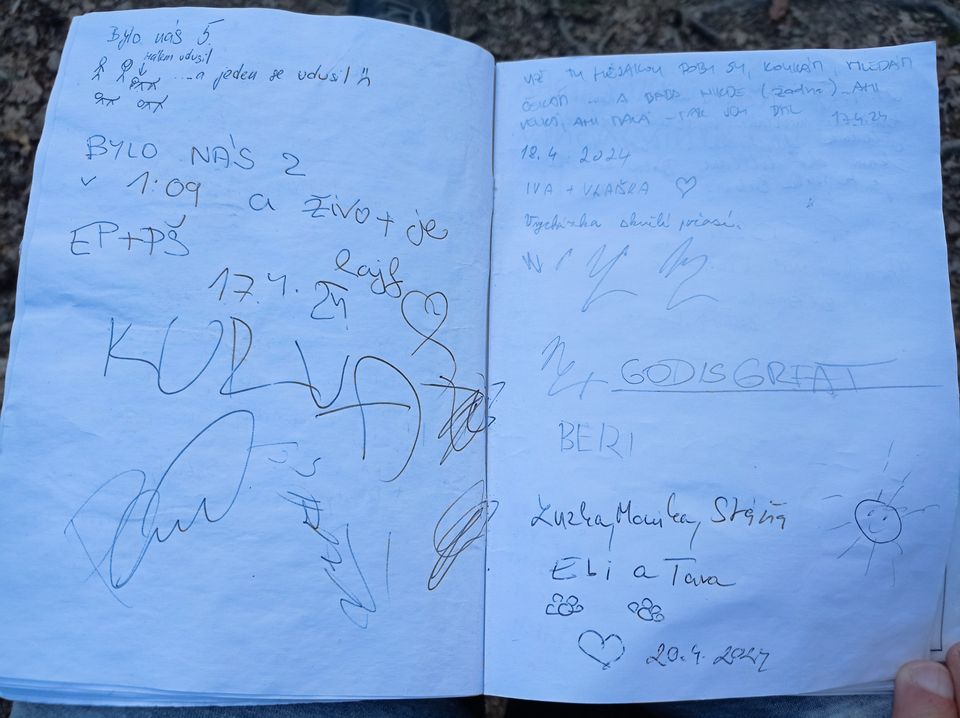 Bylo nás 5.
málem udusil
...a jeden se udusil
BYLO NÁS 2
v 1:09 a živo+ je
EP+PŠ lajf
17.4. 24
KURVA
UŽ TU NĚJAKOU DOBU SU, KOUKÁM, HLEDÁM
ČEKÁM ... A BABA NIKDE (žádná) ... ANI
VELKÁ, ANI MALÁ - TAK JDU DÁL 17.4.24
18.4. 2024
IVA + VLAŠKA
Vycházka skvělé počasí.
GOD IS GREAT
BERI
Zuzka, Monika, Stáňa
Ebi a Tara
20.4.2024